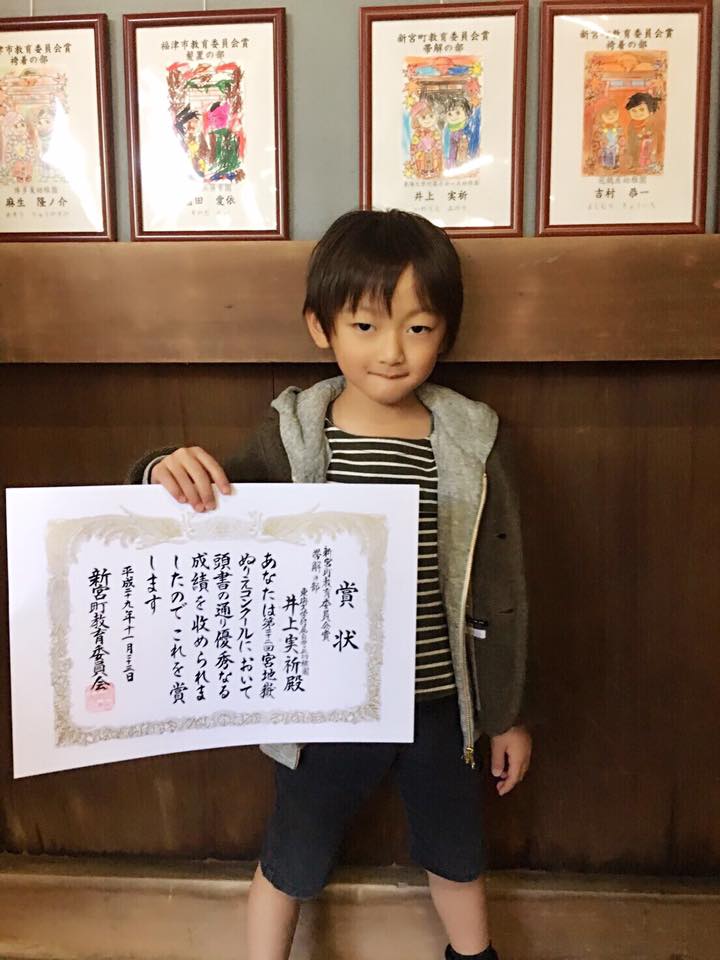 津市教育委員会賞
袴着の部
麻生 隆ノ介
福津市教育委員会賞
髪置の部
田 愛依
新宮町教育委員会賞
帯解の部
井上 実祈
新宮町教育委員会賞
袴着の部
吉村 恭一
賞状
新宮町教育委員会賞
帯解の部
井上実祈殿
あなたは第三十二回宮地嶽
ぬりえコンクールにおいて
頭書の通り優秀なる
成績を収められま
したのでこれを賞
します
平成二十九年十一月二十三日
新宮町教育委員会